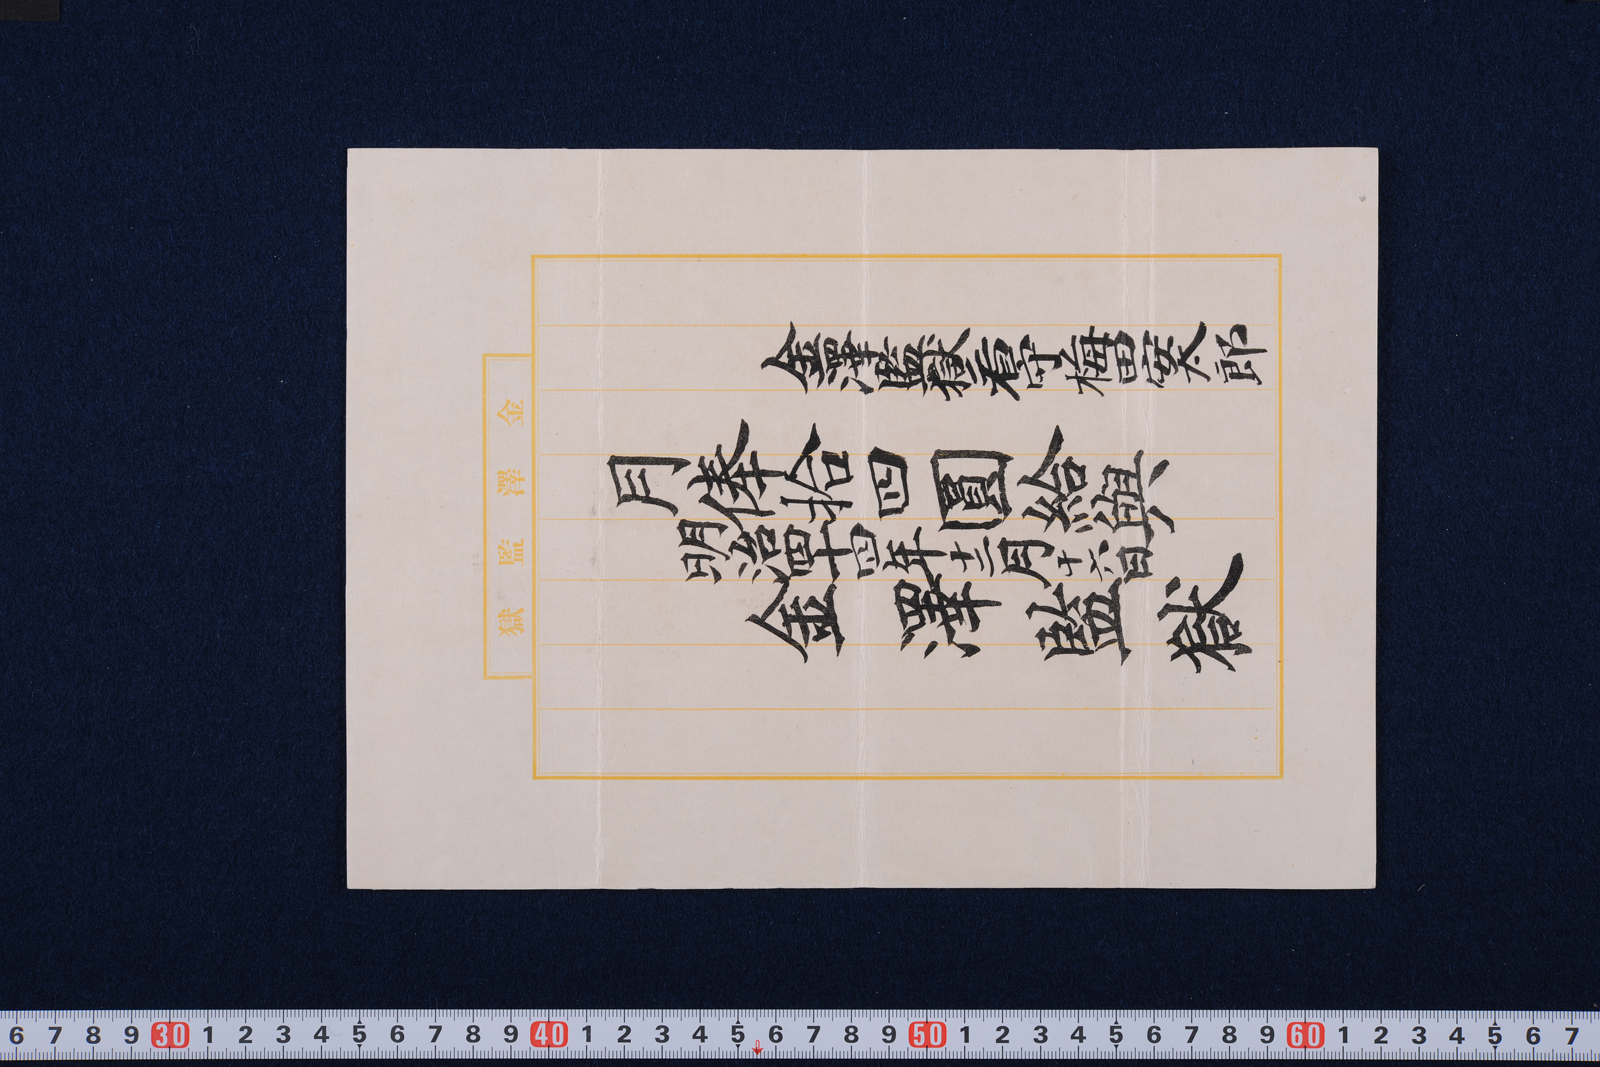 金澤監獄看守梅田安太郎
月俸拾四圓給與
明治四十四年十二月十六日
金澤監獄
金澤監獄
6 7 8 9 30 1 2 3 4 5 6 7 8 9 40 1 2 3 4 5 6 7 8 9 50 1 2 3 4 5 6 7 8 9 60 1 2 3 4 5 6 7